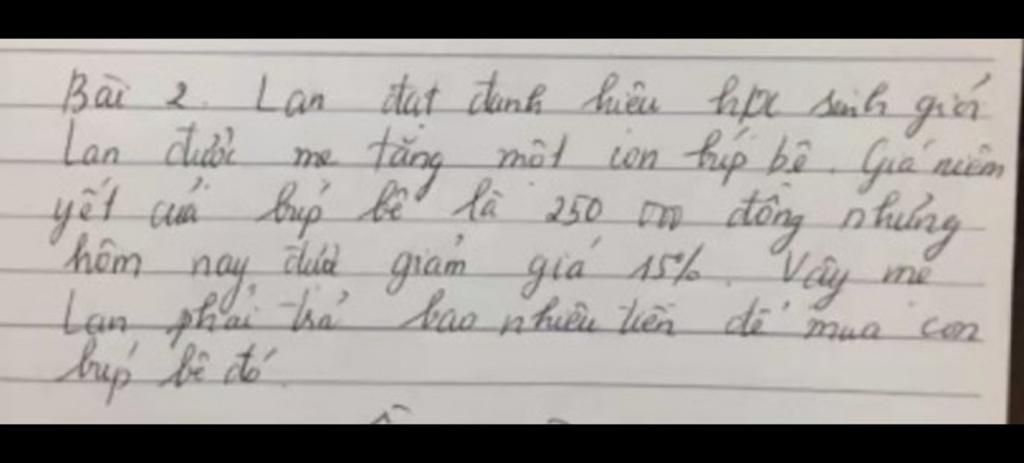 Bài 2. Lan đạt danh hiệu học sinh giỏi
Lan được mẹ tặng một con búp bê. Giá niêm
yết của búp bê là 250 000 đồng nhưng
hôm nay được giảm giá 15%. Vậy mẹ
Lan phải trả bao nhiêu tiền để mua con
búp bê đó.